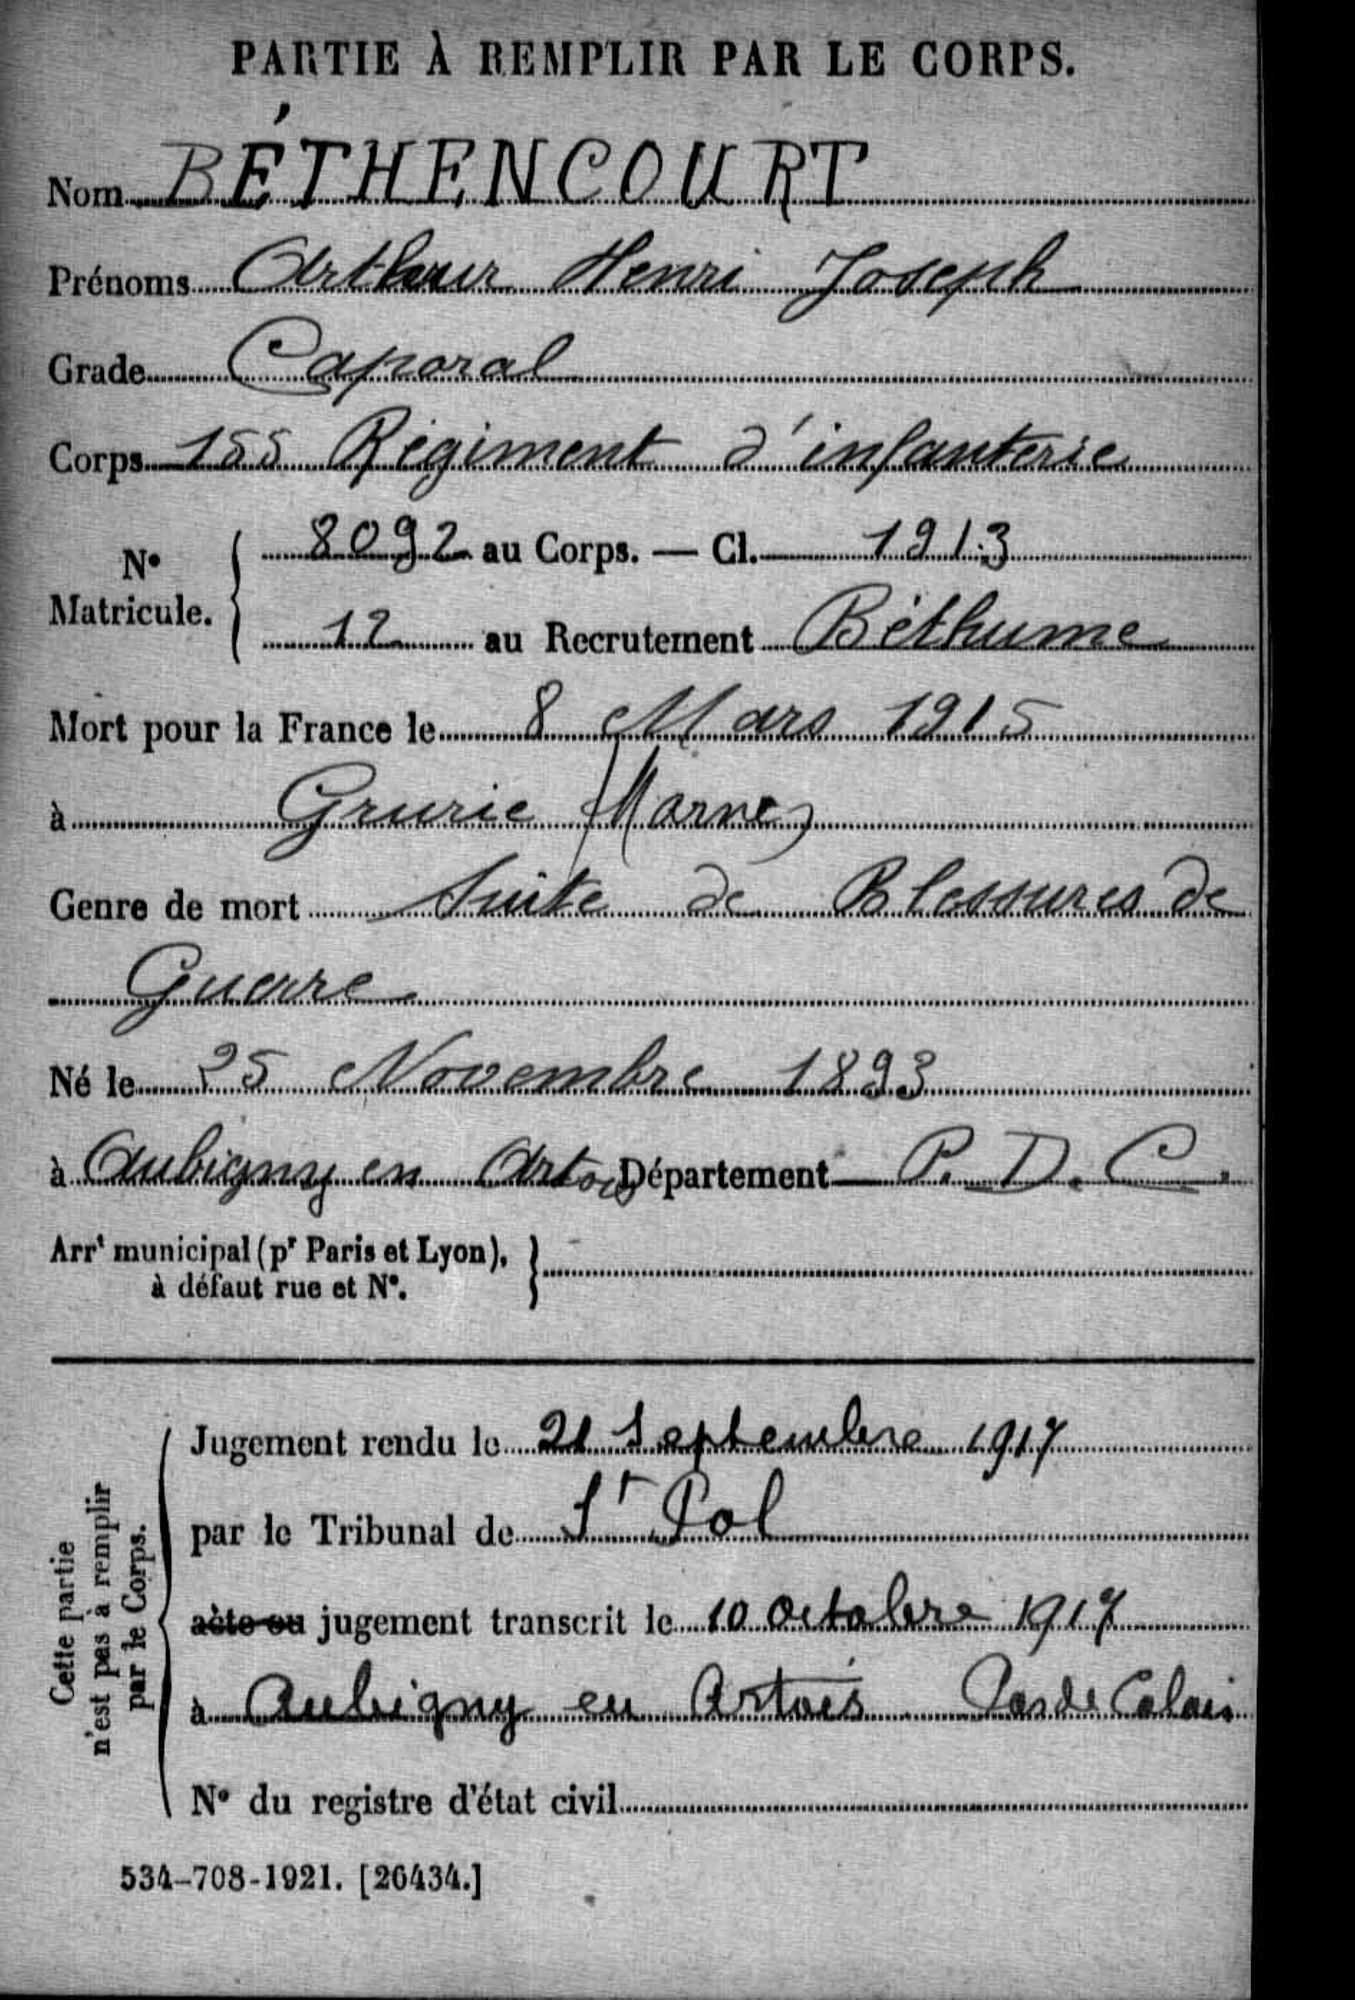 PARTIE À REMPLIR PAR LE CORPS.
Nom BÉTHENCOURT
Prénoms Arthur Henri Joseph
Grade Caporal
Corps 155 Régiment d'infanterie
N° Matricule. { 8092 au Corps. — Cl. 1913
12 au Recrutement Béthune
Mort pour la France le 8 Mars 1915
à Grurie (Marne)
Genre de mort Suite de Blessures de
Guerre
Né le 25 Novembre 1893
à Aubigny en Artois Département P. D. C.
Arrt municipal (pr Paris et Lyon), }
à défaut rue et N°.
Cette partie
n'est pas à remplir
par le Corps.
Jugement rendu le 21 Septembre 1917
par le Tribunal de St Pol
acte ou jugement transcrit le 10 Octobre 1917
à Aubigny en Artois Pas de Calais
N° du registre d'état civil
534-708-1921. [26434.]